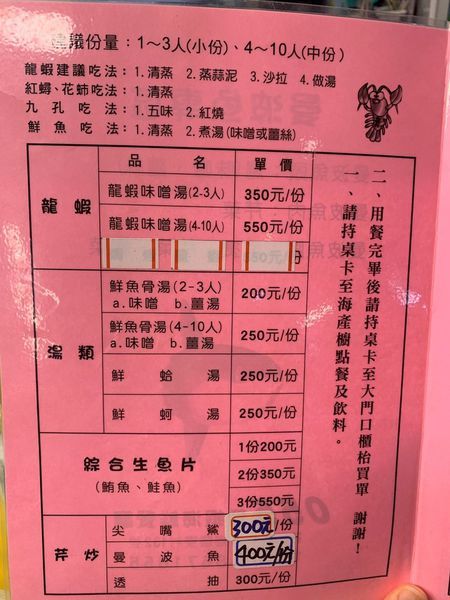 建議份量：1～3人(小份)、4～10人(中份)
龍蝦建議吃法：1.清蒸 2.蒸蒜泥 3.沙拉 4.做湯
紅蟳、花蚵吃法：1.清蒸
九孔吃法：1.五味 2.紅燒
鮮魚吃法：1.清蒸 2.煮湯(味噌或薑絲)
品名 單價
龍蝦
龍蝦味噌湯(2-3人) 350元/份
龍蝦味噌湯(4-10人) 550元/份
湯類
鮮魚骨湯(2-3人) 200元/份
a.味噌 b.薑湯
鮮魚骨湯(4-10人) 250元/份
a.味噌 b.薑湯
鮮蛤湯 250元/份
鮮蚵湯 250元/份
綜合生魚片
(鮪魚、鮭魚)
1份200元
2份350元
3份550元
芹炒
尖嘴鯊 300元/份
曼波魚 400元/份
透抽 300元/份
一、請持桌卡至海產櫥點餐及飲料。
二、用餐完畢後請持桌卡至大門口櫃枱買單 謝謝！